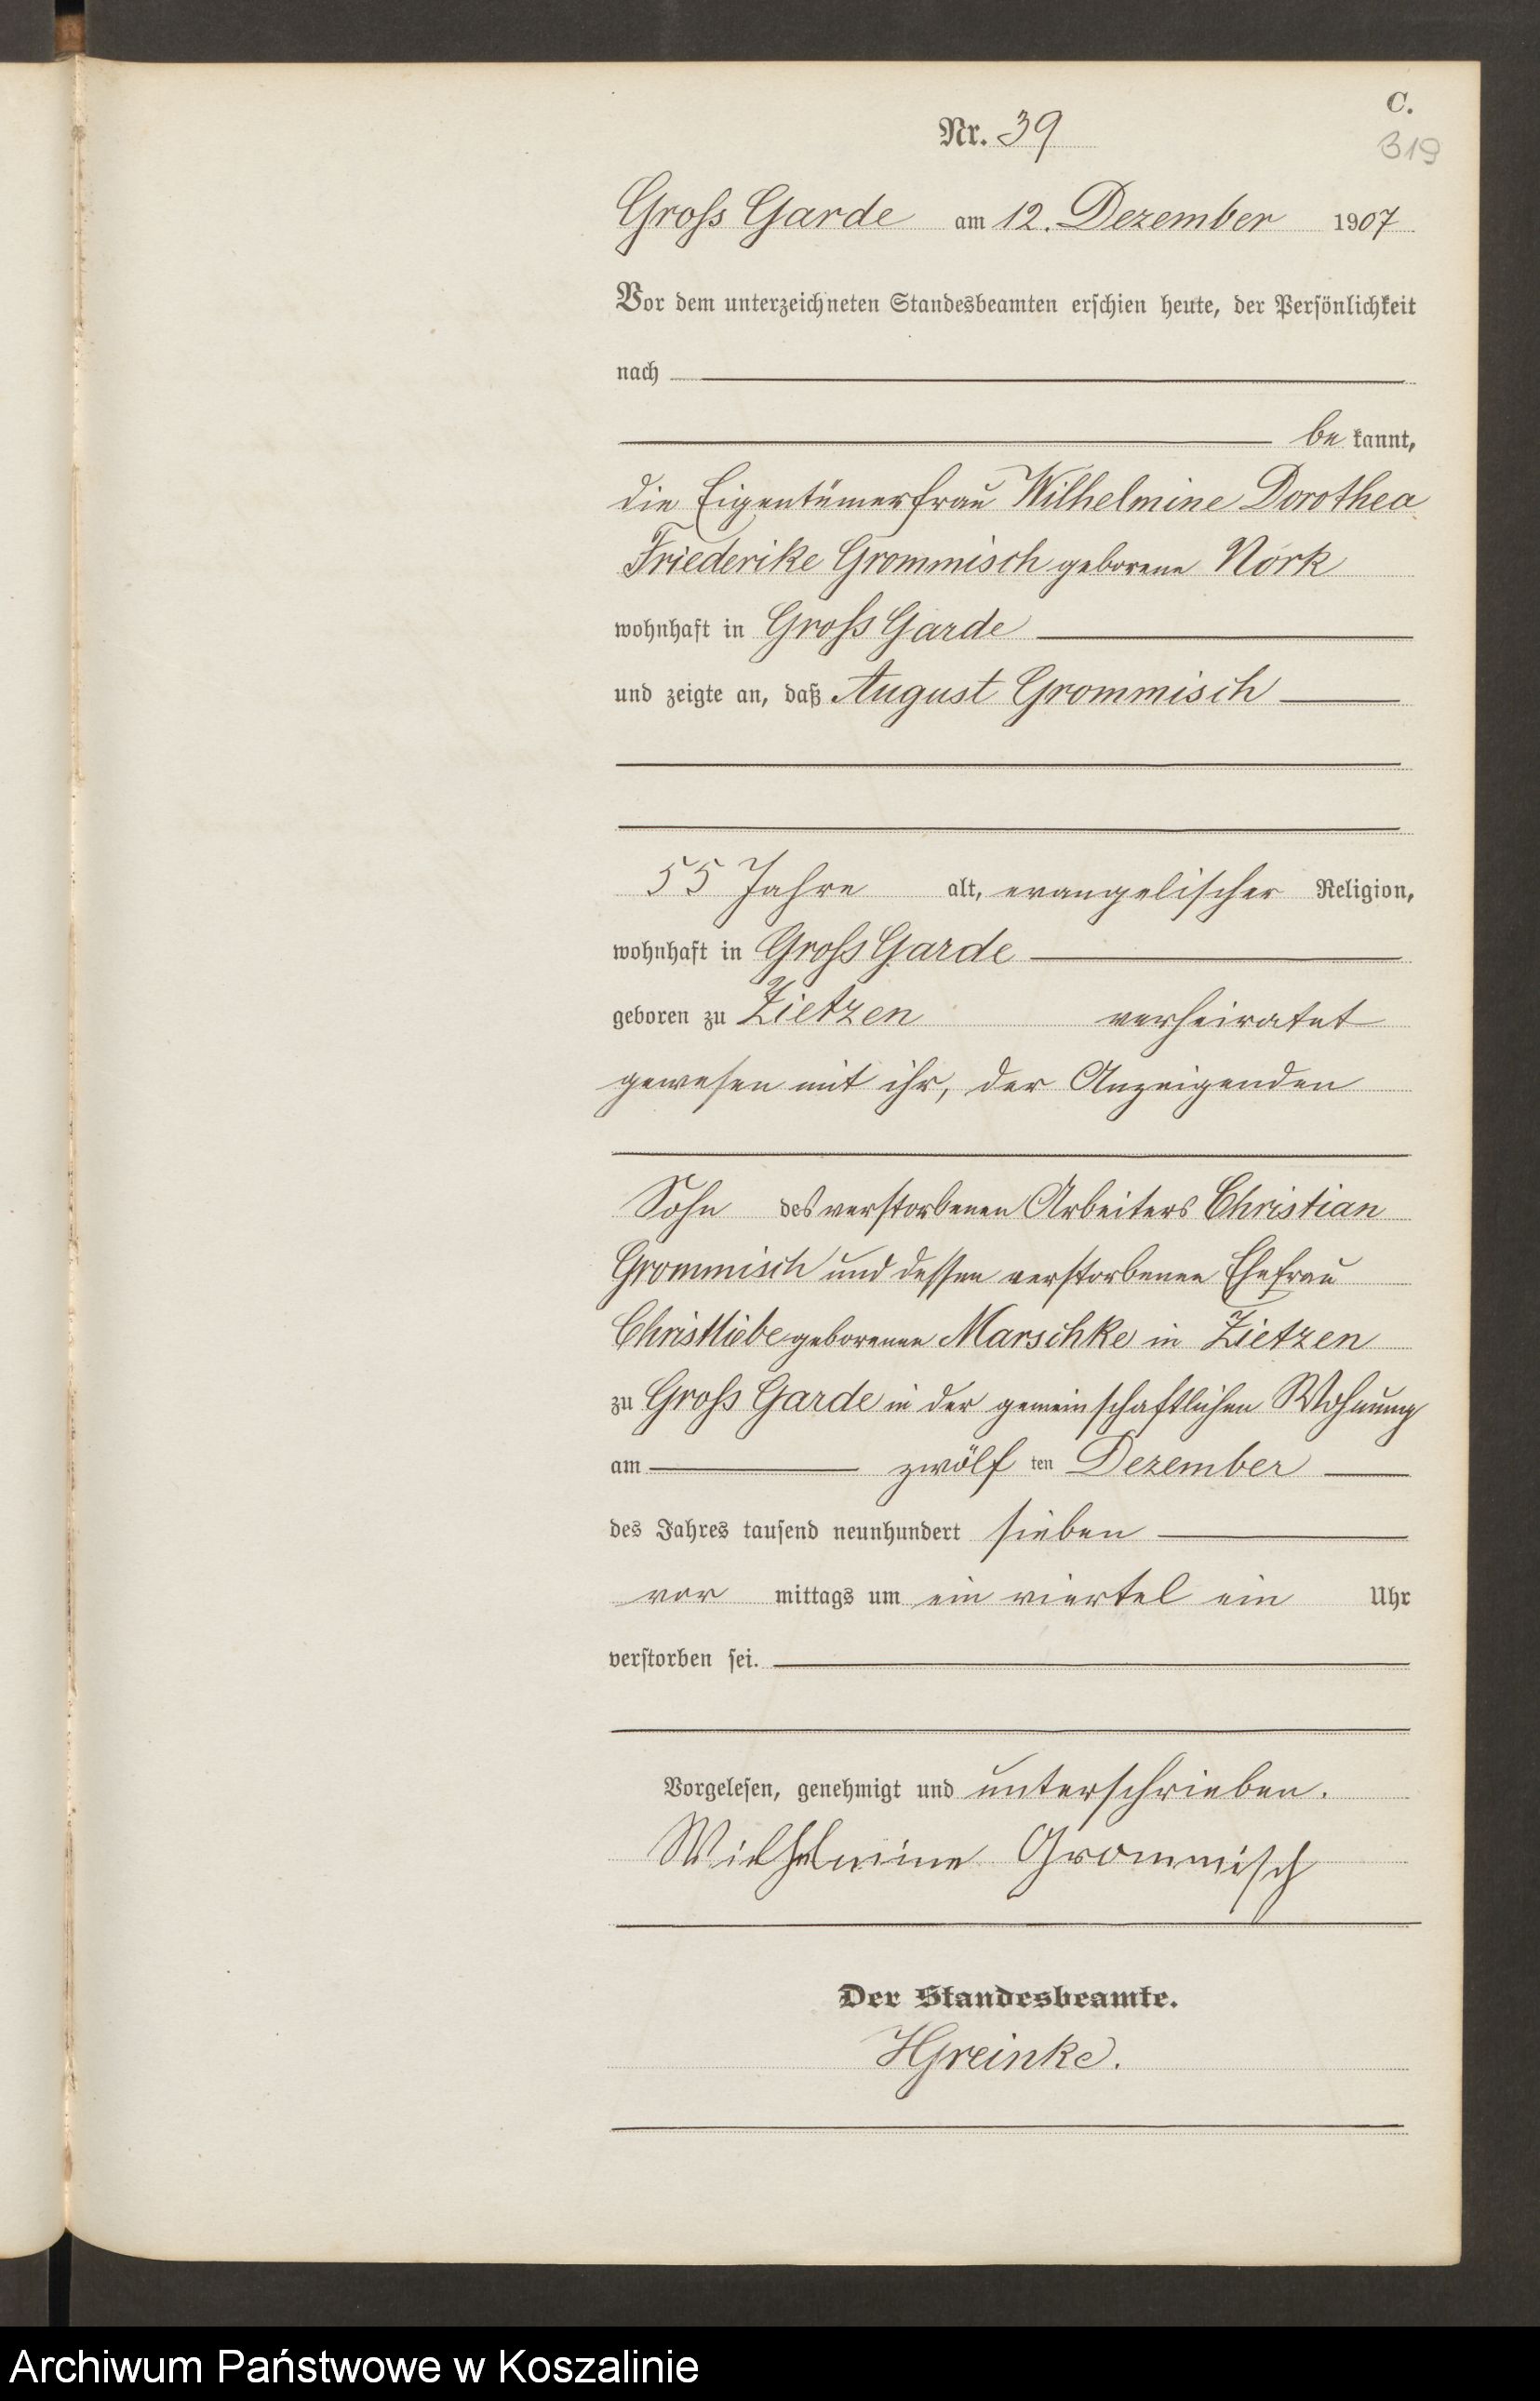 C.
Nr. 39
319
Gross Garde am 12. Dezember 1907
Vor dem unterzeichneten Standesbeamten erschien heute, der Persönlichkeit
nach
be kannt,
die Eigentümerfrau Wilhelmine Dorothea
Friederike Grommisch geborene Nork
wohnhaft in Gross Garde
und zeigte an, daß August Grommisch
55 Jahre alt, evangelischer Religion,
wohnhaft in Gross Garde
geboren zu Zietzen verheiratet
gewesen mit ihr, der Anzeigenden
Sohn des verstorbenen Arbeiters Christian
Grommisch und dessen verstorbenen Ehefrau
Christliebe geborenen Marschke in Zietzen
zu Gross Garde in der gemeinschaftlichen Wohnung
am zwölf ten Dezember
des Jahres tausend neunhundert sieben
vor mittags um ein viertel ein Uhr
verstorben sei.
Vorgelesen, genehmigt und unterschrieben.
Wilhelmine Grommisch
Der Standesbeamte.
HGreinke.
Archiwum Państwowe w Koszalinie